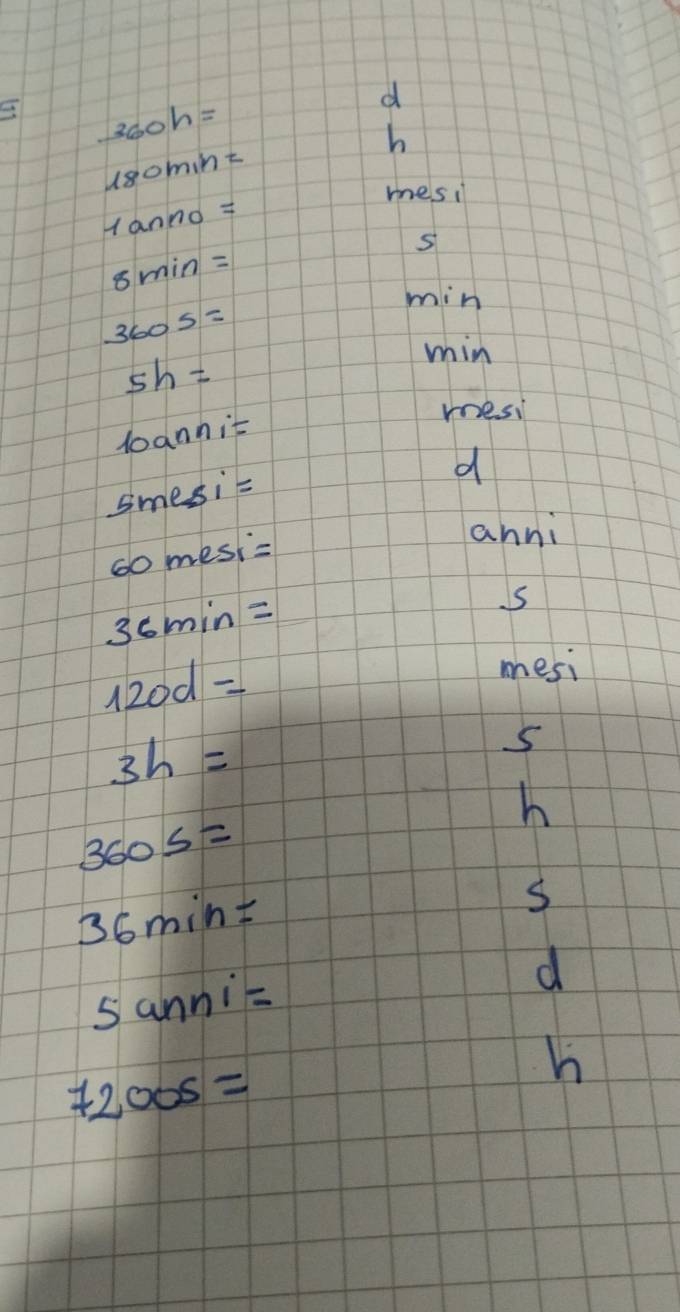 360h= d
180min= h
1anno= mesi
8min= s
360s= min
5h= min
10anni= mesi
5mesi= d
60mesi= anni
36min= s
120d= mesi
3h= s
360s= h
36min= s
5anni= d
7200s= h